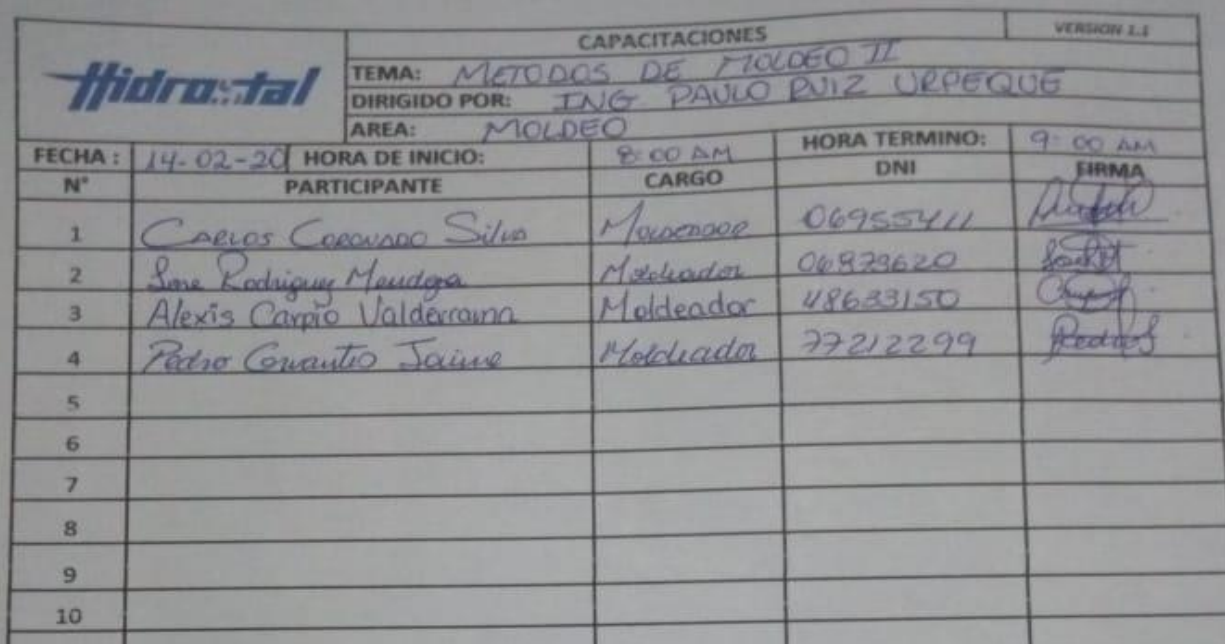 Hidrostal
CAPACITACIONES VERSION 1.1
TEMA: METODOS DE MOLDEO II
DIRIGIDO POR: ING PAULO RUIZ URPEQUE
AREA: MOLDEO
FECHA: 14-02-20 HORA DE INICIO: 8:00 AM HORA TERMINO: 9:00 AM
N° PARTICIPANTE CARGO DNI FIRMA
1 CARLOS CORONADO Silva MOLDEADOR 06955411
2 Rodriguez Mendoza Moldeador 06879620
3 Alexis Carpio Valderrama Moldeador 48633150
4 Pedro Jaime Moldeador 77212299
5
6
7
8
9
10